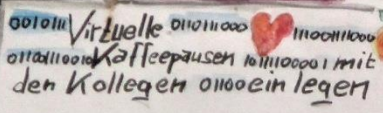 0010111 Virtuelle 0110111000 ❤ 11100111000
011001110010 Kaffeepausen 10111100001 mit
den Kollegen 01100 einlegen